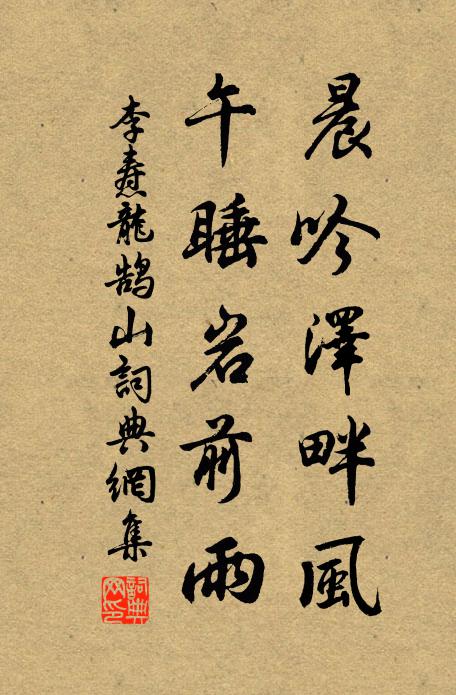 晨吟澤畔風
午睡岩前雨
李壽龍鵠山詞典網集
詞典網印